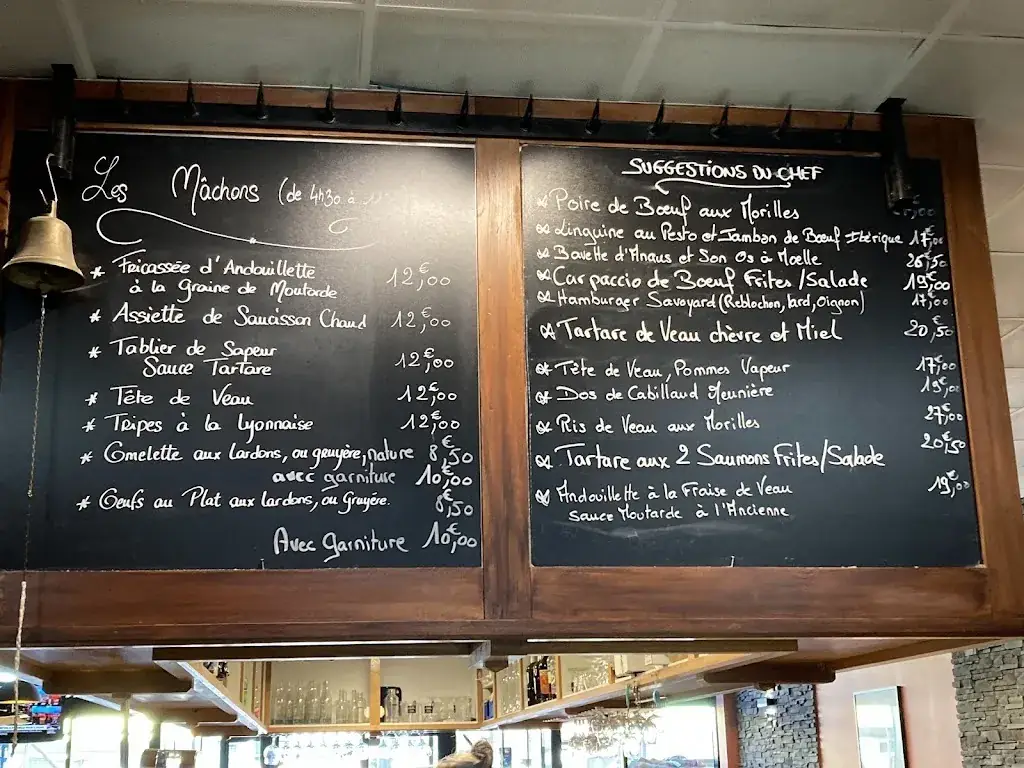 Les Mâchons (de 4h30 à
* Fricassée d'Andouillette
à la Graine de Moutarde 12,00€
* Assiette de Saucisson Chaud 12,00€
* Tablier de Sapeur
Sauce Tartare 12,00€
* Tête de Veau 12,00€
* Tripes à la Lyonnaise 12,00€
* Omelette aux lardons, ou gruyère, nature 8,50€
avec garniture 10,00€
* Oeufs au Plat aux lardons, ou Gruyère. 8,50€
Avec garniture 10,00€
SUGGESTIONS DU CHEF
* Poire de Bœuf aux Morilles
* Linguine au Pesto et Jambon de Bœuf Ibérique 17,00
* Bavette d'Angus et Son Os à Moelle 26,50€
* Carpaccio de Boeuf Frites/Salade 19,00€
* Hamburger Savoyard (Reblochon, lard, Oignon) 17,00€
* Tartare de Veau chèvre et Miel 20,50€
* Tête de Veau, Pommes Vapeur 17,00€
* Dos de Cabillaud Meunière 19,00€
* Ris de Veau aux Morilles 27,00€
* Tartare aux 2 Saumons Frites/Salade 20,50€
* Andouillette à la Fraise de Veau 19,00€
Sauce Moutarde à l'Ancienne